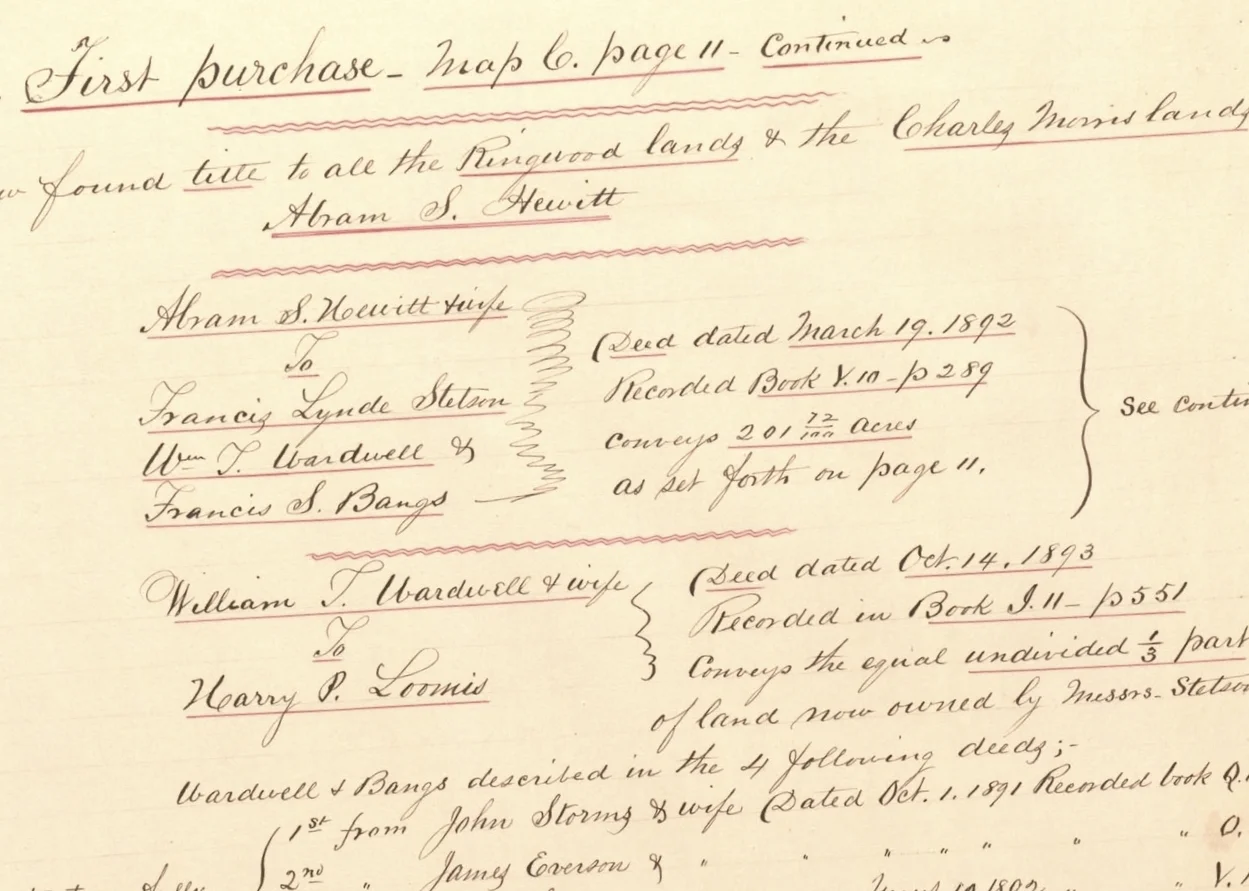 First purchase - Map C. page 11 - Continued
found title to all the Ringwood lands & the Charles Morris lands
Abram S. Hewitt
Abram S. Hewitt & wife
To
Francis Lynde Stetson
Wm T. Wardwell &
Francis S. Bangs
(Deed dated March 19. 1892
Recorded Book V. 10 - p 289
conveys 201 72/100 Acres
as set forth on page 11.
See
William T. Wardwell & wife
To
Harry P. Loomis
(Deed dated Oct. 14. 1893
Recorded in Book J. 11 - p 551
Conveys the equal undivided 1/3 part
of land now owned by Messrs. Stetson
Wardwell & Bangs described in the 4 following deeds;-
1st from John Storms & wife (Dated Oct. 1. 1891 Recorded book Q.
2nd " James Everson & " " " " " " " O.
V.